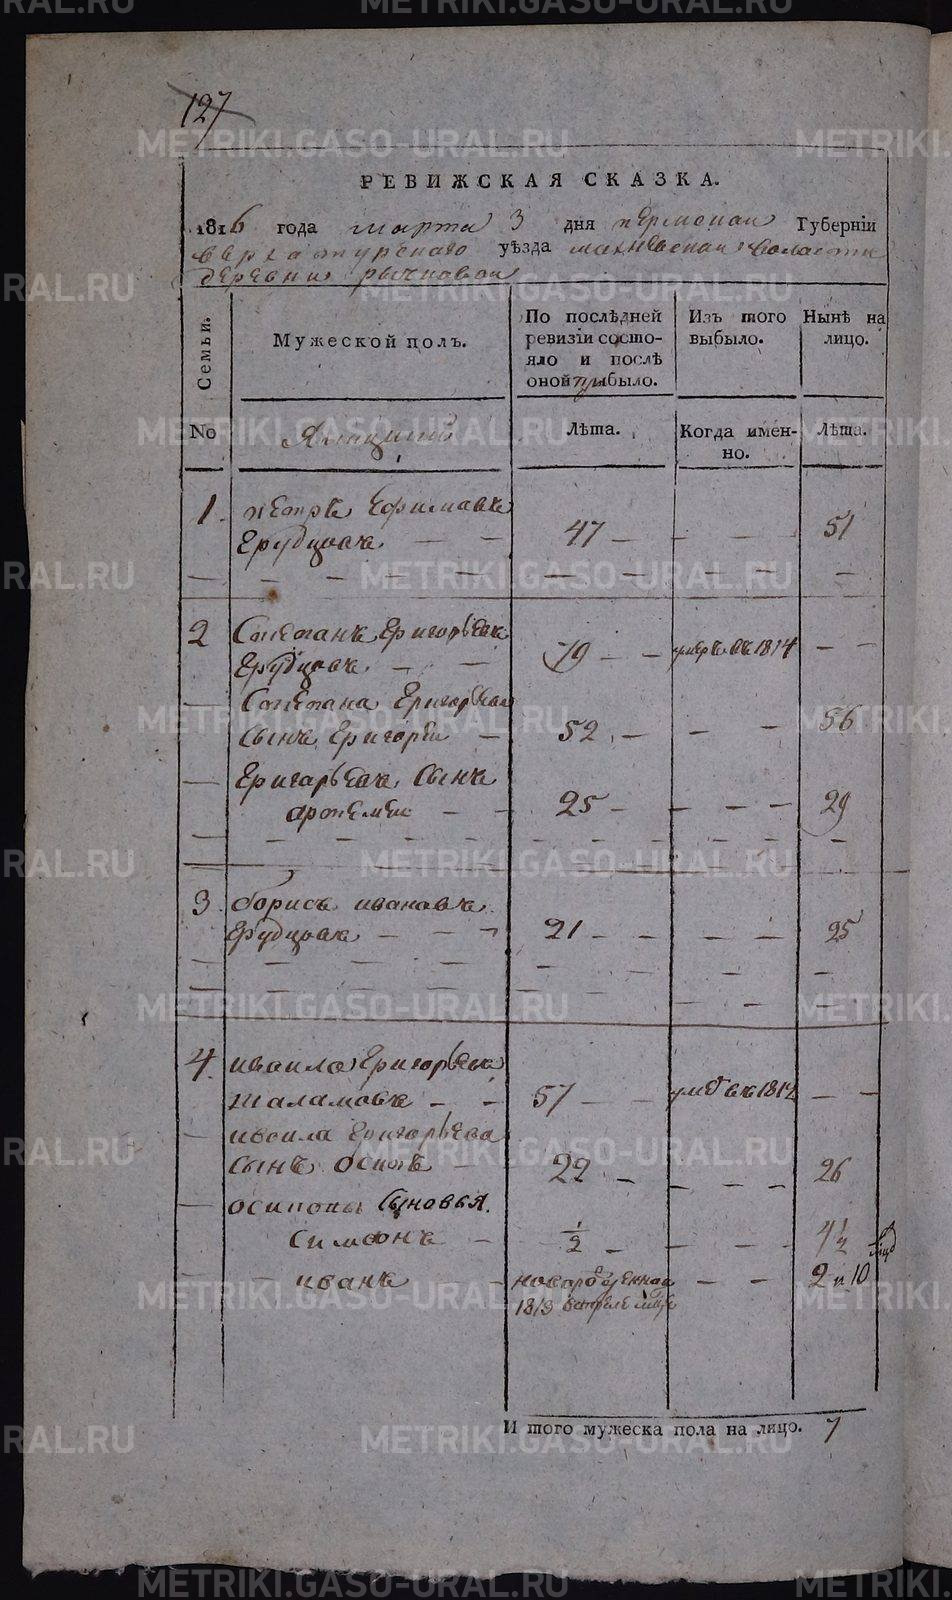 127
РЕВИЖСКАЯ СКАЗКА.
1816 года марта 3 дня пермскаи Губернїи
верхатурскаго уѣзда махневскаи воласти
деревни рычковаи
Семьи.
Мужеской полъ.
По послѣдней ревизїи состояло и послѣ оной прибыло.
Изъ того выбыло.
Нынѣ на лицо.
No
Ямщиковъ
Лѣта.
Когда именно.
Лѣта.
1. петръ Ефимавъ
Ерубцовъ 47 51
2 Степанъ Григорьевъ
Ерубцовъ 79 умеръ въ 1814
Степана Григорьева
сынъ Григореи 52 56
Григорьевъ Сынъ
артемеи 25 29
3. борисъ ивановъ
Ерубцовъ 21 25
4. иваила Григорьевъ
шаламовъ 57 умеръ въ 1812
иваила Григорьева
сынъ осипъ 22 26
осиповы сыновья.
Симеонъ 1/2 4 1/2
иванъ новарожденнаи 2 и 10
1813
И того мужеска пола на лицо. 7
METRIKI.GASO-URAL.RU